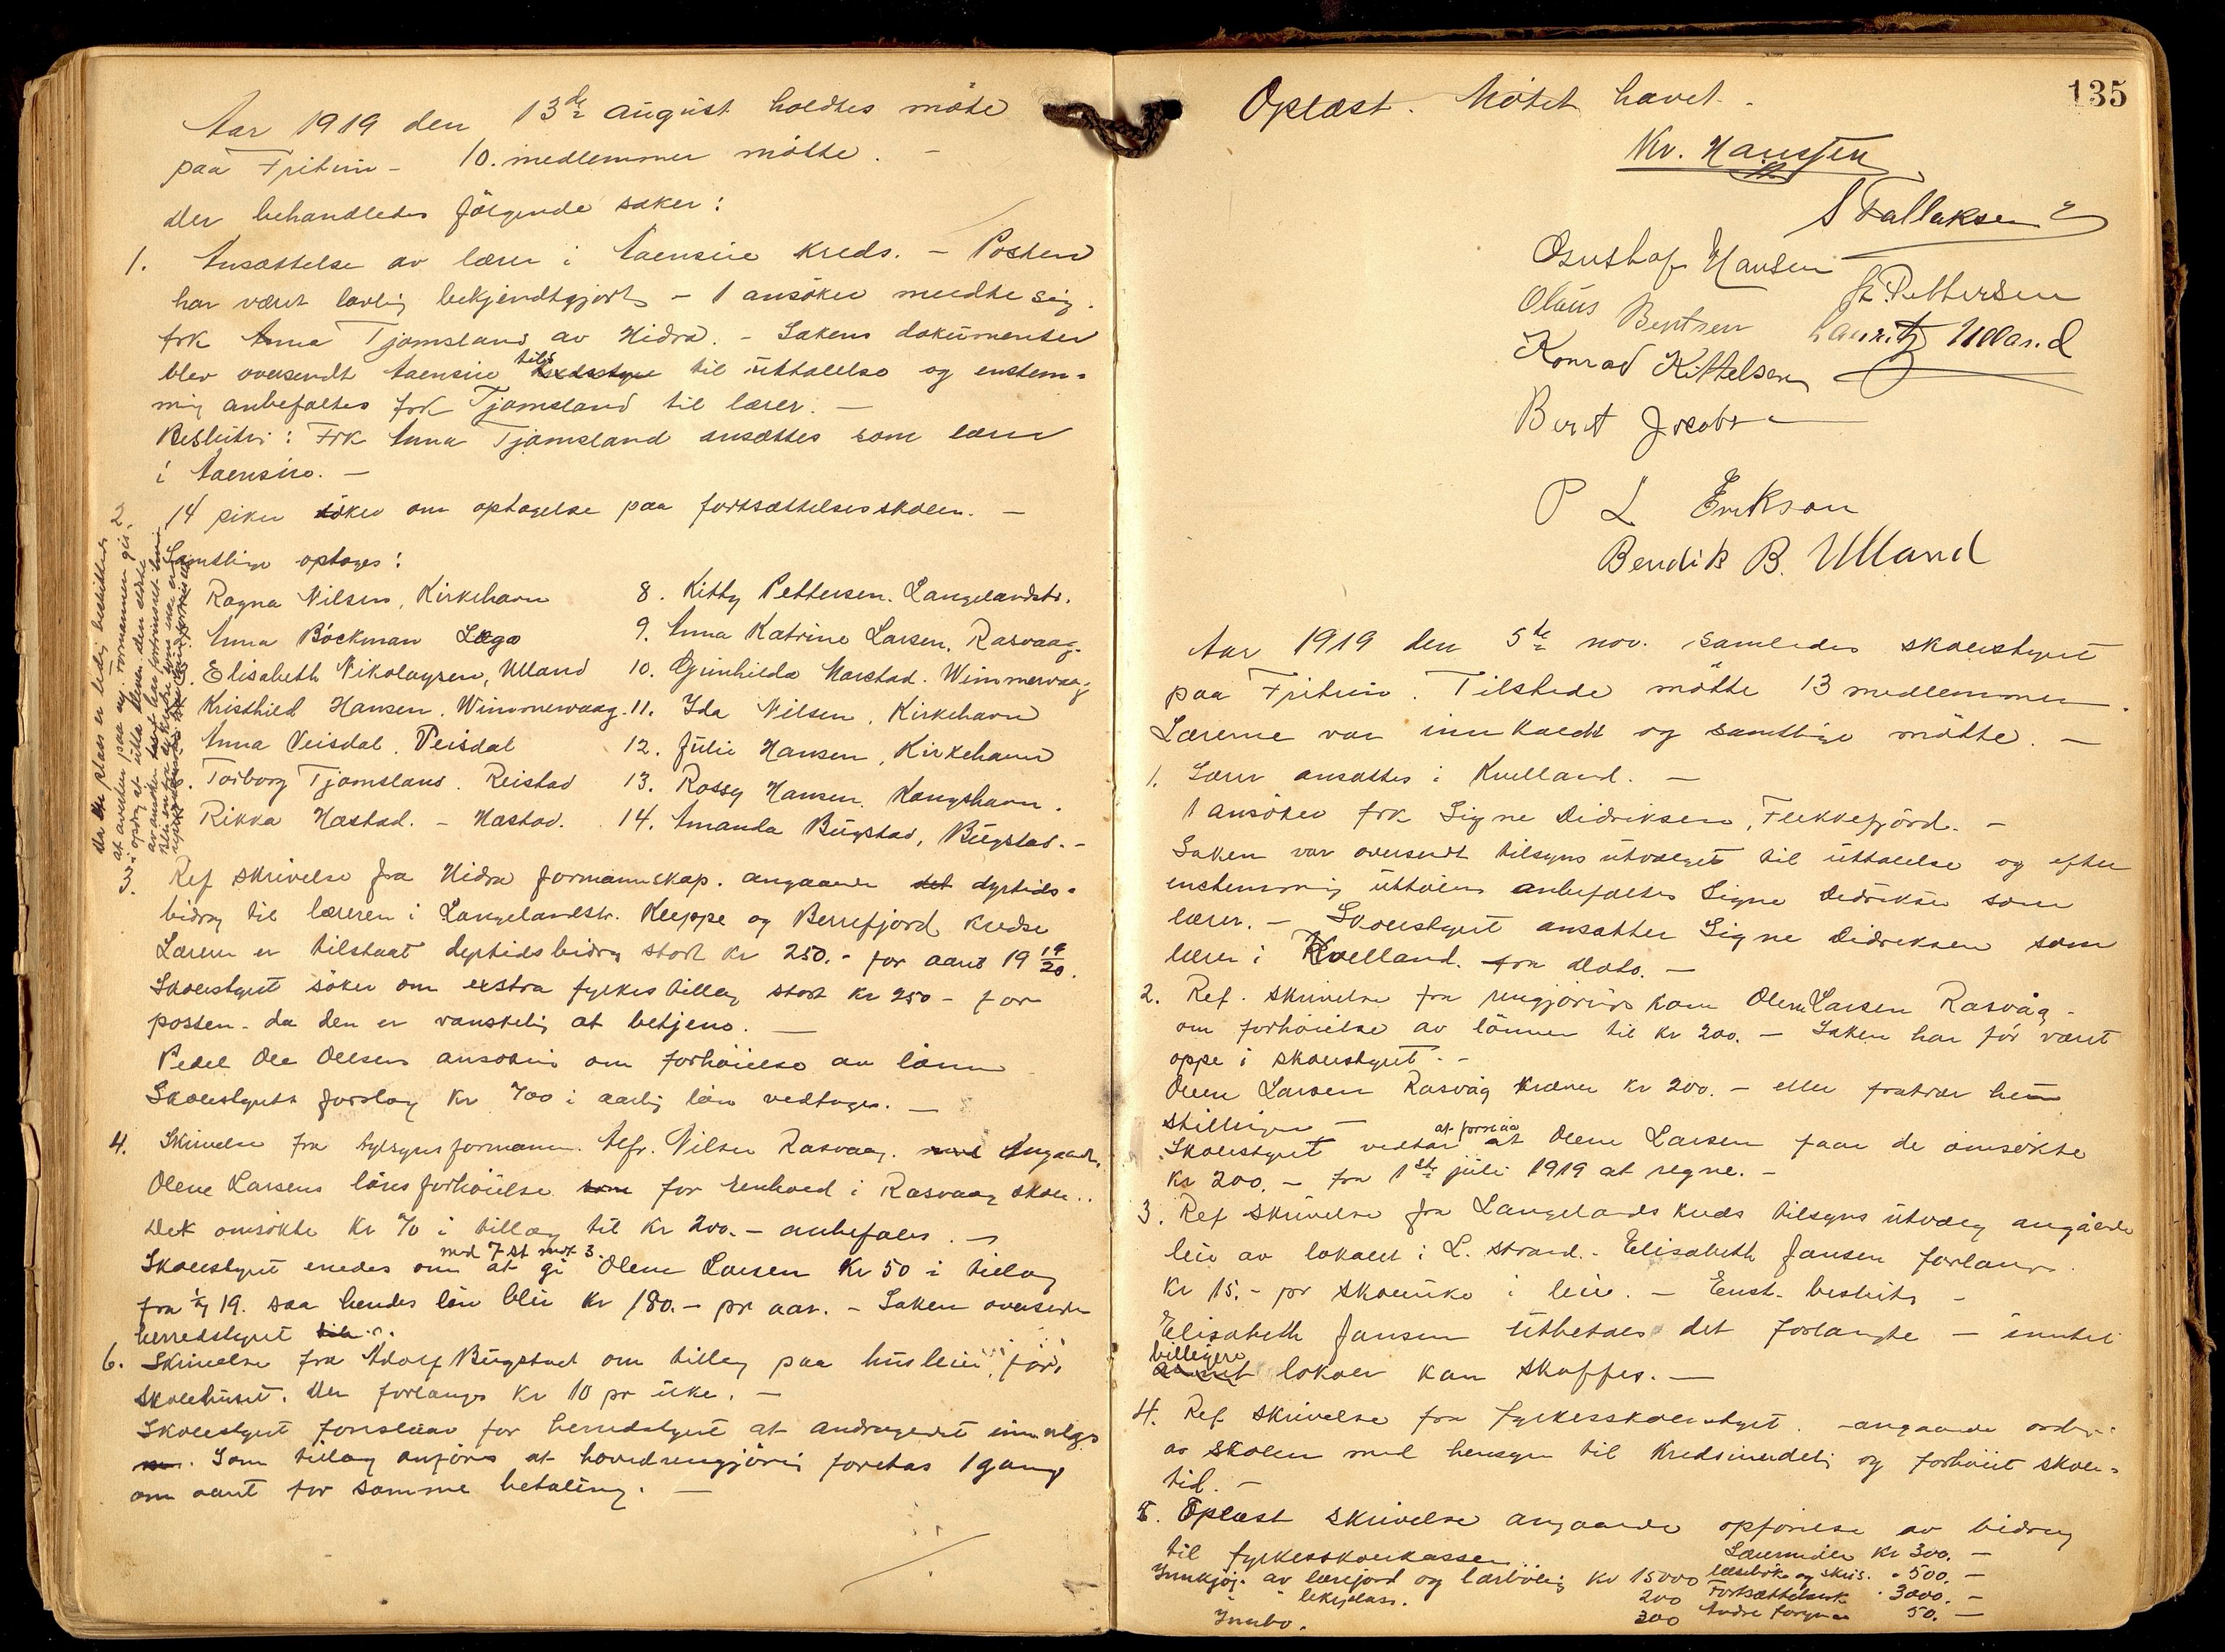 Aar 1919 den 13de august holdtes møte
paa Fritun - 10. medlemmer møtte. -
Der behandledes følgende saker:
1. Ansættelse av lærer i Aaensire kreds. - Posten
har været lovlig bekjendtgjort - 1 ansøker meldte sig.
frk Anna Tjomsland av Hidra. - Sakens dokumenter
blev oversendt Aaensire tils til uttalelse og enstem-
mig anbefaltes frk Tjomsland til lærer. -
Beslutn: Frk Anna Tjomsland ansættes som lærer
i Aaensire. -
2. 14 piker søker om optagelse paa fortsættelsesskolen. -
Samtlige optages:
Ragna Nilsen, Kirkehavn
Anna Böckman Lægo
Elisabeth Nikolaysen, Ulland
Kristhild Hansen. Winmerwaag.
Anna Veisdal. Veisdal
Torborg Tjomsland. Reistad
Rikka Hæstad. - Hæstad.
8. Kitty Pettersen. Langelandstr.
9. Anna Katrine Larsen, Rasvaag.
10. Gunhilda Marstad. Wimmerwaag
11. Ida Nilsen, Kirkehavn
12. Julie Hansen, Kirkehavn
13. Rossy Hansen. Kongshavn.
14. Amanda Bugstad, Bugstad. -
3. Ref skrivelse fra Hidra formannskap. angaaende det dyrtids-
bidrag til læreren i Langelandstr. Kleppe og Berrefjord kredse
Læren er tilstaat dyrtidsbidrag stort kr 250. - for aaret 19 19/20.
Skolestyret søker om extra fylkestillæg stort kr 250 - for
posten - da den er vanskelig at betjene. -
Pedel Ole Olsens ansøkn om forhøielse av lønn
Skolestyrets forslag kr 700 i aarlig løn vedtages. -
4. Skrivelse fra tylsynsformann. Alfr. Nilsen Rasvaag. Angaaende
Olene Larsens lønsforhøielse som for renhold i Rasvaag skole..
Det omsøkte kr 70 i tillæg til kr 200. - anbefales. -
med 7 st mot 3.
Skolestyret enedes om at gi Olene Larsen kr 50 i tillæg
fra 1/7 19. saa hendes løn blir kr 180. - pr aar. - Saken oversendes
herredstyret
6. Skrivelse fra Adolf Bugstad om tillæg paa husleie for
skolehuset. Der forlanges kr 10 pr uke. -
Skolestyret foreslaar for herredstyret at andragendet
Som tillæg anføres at hovedrengjøring foretas 1 gang
om aaret for samme betaling. -
135
Oplæst. Møtet hævet. -
Kr. Hanssen
S Tallaksen
Gusthof Hansen
A. Pettersen
Olaus Bentsen
Lauritz Ulland
Konrad Kittelsen
Berat Jacobsen
P L Erikson
Bendik B. Ulland
Aar 1919 den 5te nov. samledes skolestyret
paa Fritun. Tilstede møtte 13 medlemmer.
Lærerne var innkaldt og samtlige møtte. -
1. Lærer ansattes i Kvelland. -
1 ansøker frk Signe Didriksen, Flekkefjord. -
Saken var oversendt tilsynsutvalget til uttalelse og efter
enstemmig uttalelse anbefaltes Signe Didriksen som
lærer. - Skolestyret ansatter Signe Didriksen som
lærer i Kvelland. fra dato. -
2. Ref. skrivelse fra rengjøringskone Olene Larsen Rasvåg -
om forhøielse av lønnen til kr 200. - Saken har før været
oppe i skolestyret. -
Olene Larsen Rasvåg kræver kr 200. - eller fratrær hun
stillingen -
at foreslaa
Skolestyret vedtar at Olene Larsen faar de omsøkte
kr 200. - fra 1ste juli 1919 at regne. -
3. Ref skrivelse fra Langelands kreds tilsynsutvalg angående
leie av lokalet i L. strand. - Elisabeth Jansen forlanger
kr 15. - pr skoleuke i leie. - Enst. beslutn -
Elisabeth Jansen utbetales det forlangte - inntil
billigere
annet lokaler kan skaffes. -
4. Ref skrivelse fra fylkesskolestyret. - angaaende ordn.
av skolen med hensyn til kredsinndeling og forhøiet skole-
tid. -
5. Oplæst skrivelse angaaende opførelse av bidrag
til fylkesskolekassen. Læremidler kr 300. -
Innkjøp av lærejord og lærbolig kr 15000 læsebøker og skris. - 500. -
lekeplass. 200 Fortsættelsessk. 3000. -
Innbo. 300 Andre forgm. 50. -